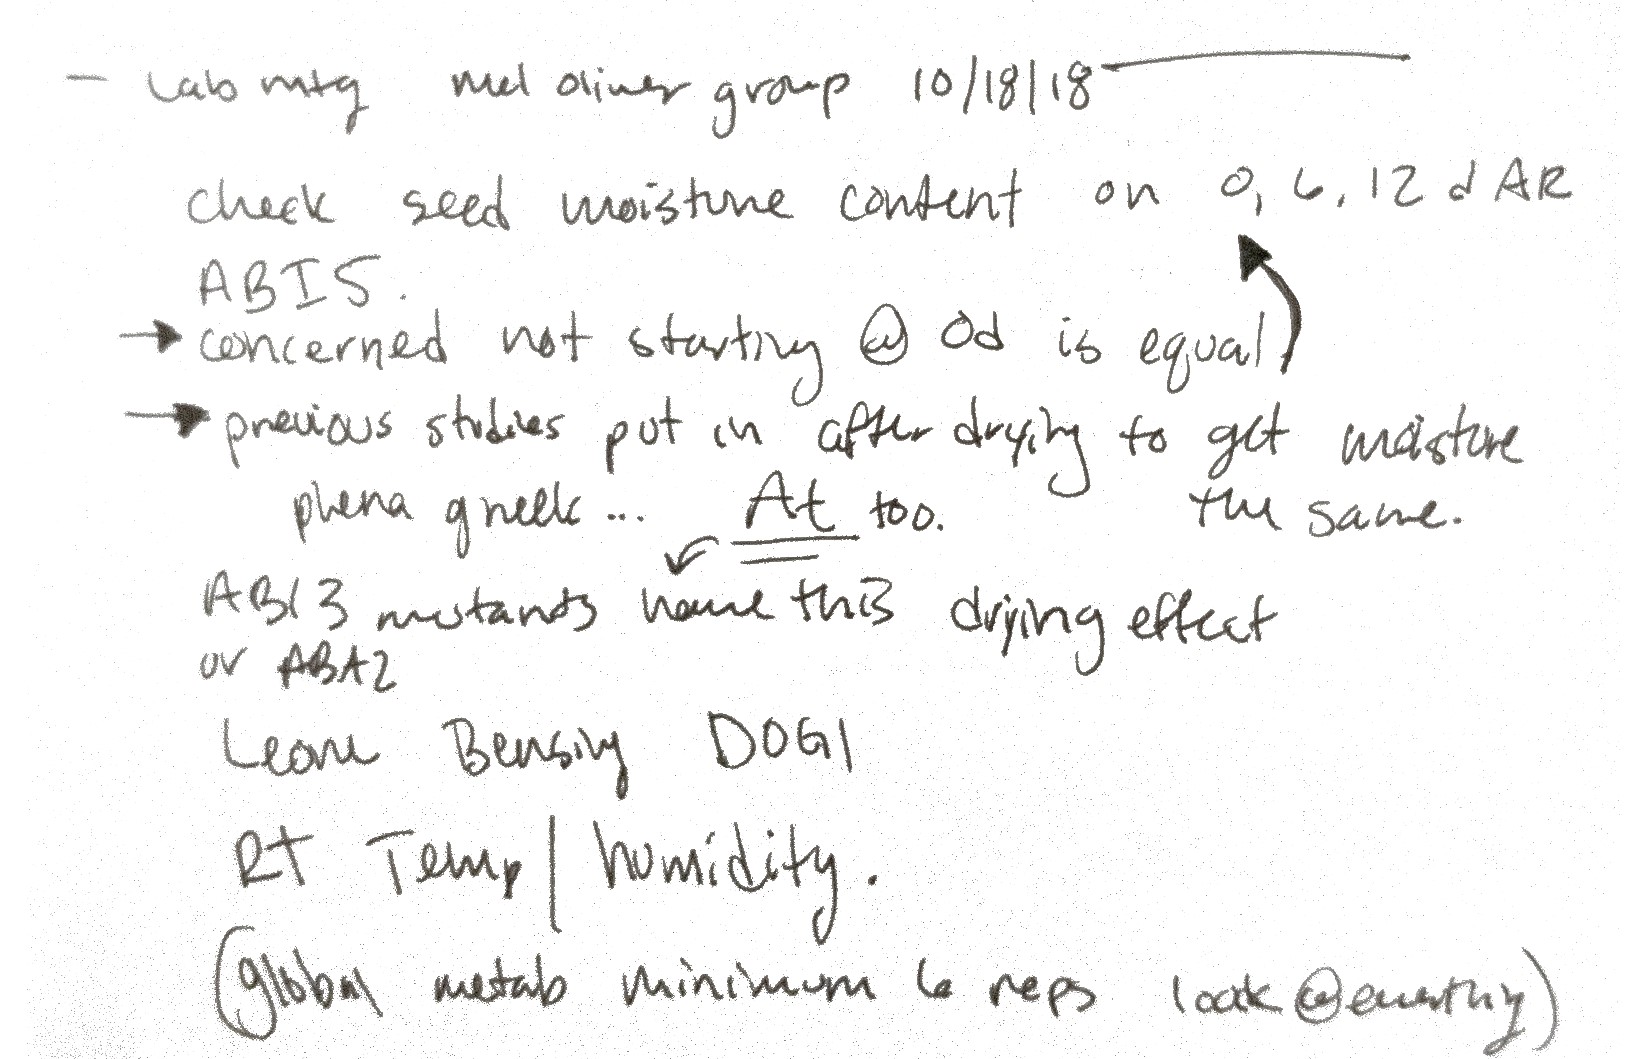 - Lab mtg Mel Oliver group 10/18/18
check seed moisture content on 0, 6, 12 d AR
ABI5.
→ concerned not starting @ 0d is equal
→ previous studies put in after drying to get moisture
the same.
phena greek ... At too.
ABI3 mutants have this drying effect
or ABA2
Leone Bensing DOG1
RT Temp/humidity.
(global metab minimum 6 reps look @ everthing)